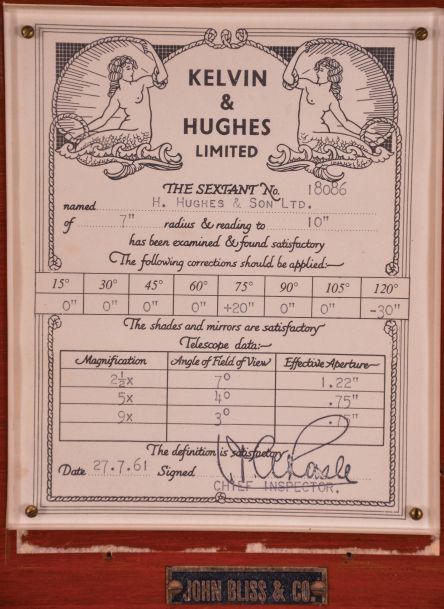 KELVIN
&
HUGHES
LIMITED
THE SEXTANT No. 18086
named H. HUGHES & SON LTD.
of 7" radius & reading to 10"
has been examined & found satisfactory
The following corrections should be applied:—
15° 30° 45° 60° 75° 90° 105° 120°
0" 0" 0" 0" +20" 0" 0" -30"
The shades and mirrors are satisfactory
Telescope data:—
Magnification Angle of Field of View Effective Aperture
2½x 7° 1.22"
5x 4° .75"
9x 3° .75"
The definition is satisfactory
Date 27.7.61 Signed
CHIEF INSPECTOR.
JOHN BLISS & CO.